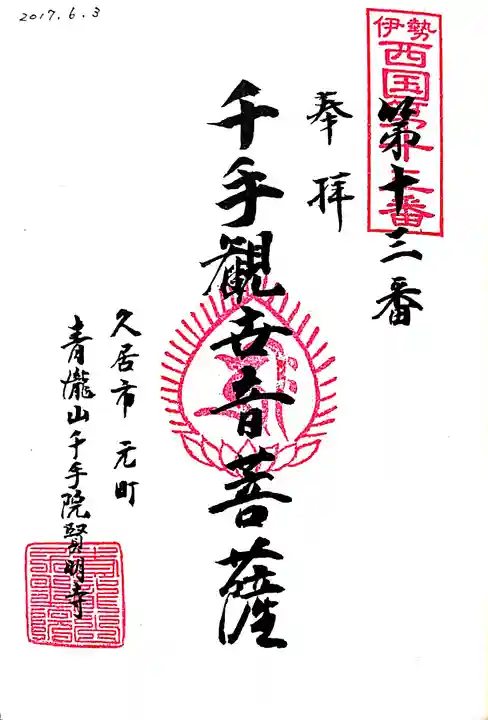 2017.6.3
伊勢
西国第十三番
第十三番
奉拝
千手観世音菩薩
久居市 元町
青瀧山千手院賢明寺